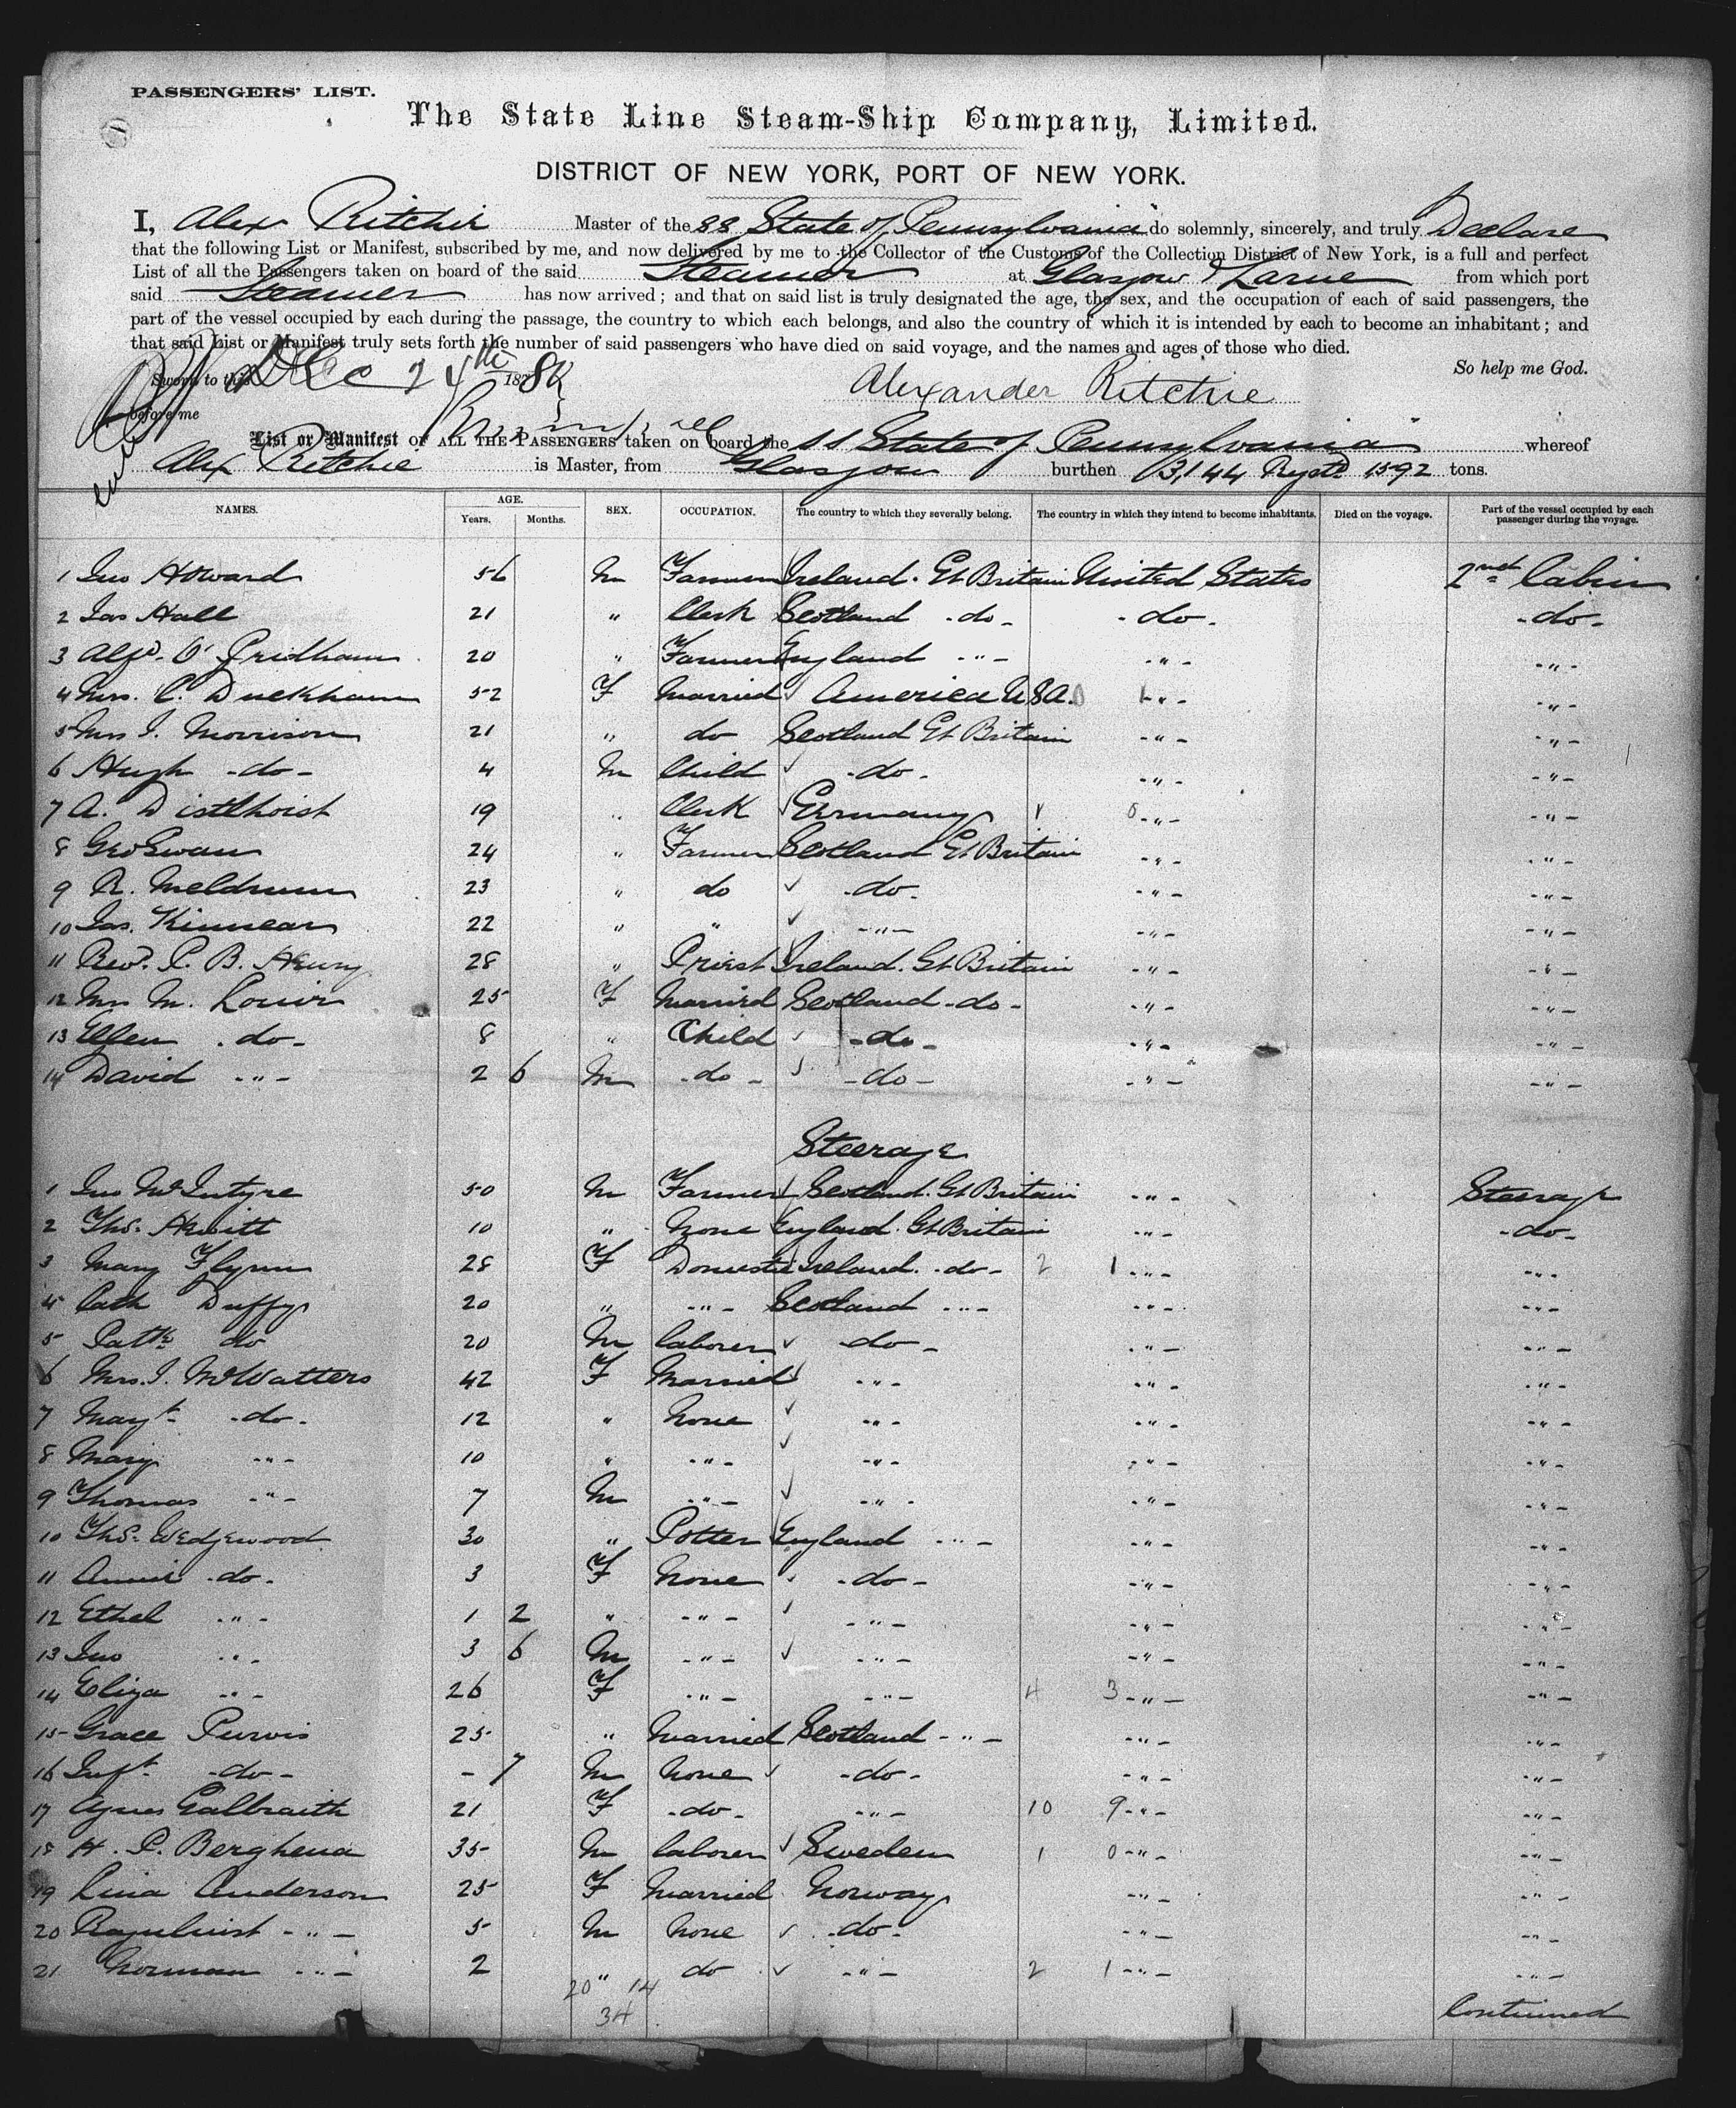 PASSENGERS' LIST.
The State Line Steam-Ship Company, Limited.
DISTRICT OF NEW YORK, PORT OF NEW YORK.
I, Alex Ritchie Master of the SS State of Pennsylvania do solemnly, sincerely, and truly Declare
that the following List or Manifest, subscribed by me, and now delivered by me to the Collector of the Customs of the Collection District of New York, is a full and perfect
List of all the Passengers taken on board of the said Steamer at Glasgow & Larne from which port
said Steamer has now arrived; and that on said list is truly designated the age, the sex, and the occupation of each of said passengers, the
part of the vessel occupied by each during the passage, the country to which each belongs, and also the country of which it is intended by each to become an inhabitant; and
that said List or Manifest truly sets forth the number of said passengers who have died on said voyage, and the names and ages of those who died.
So help me God.
Sworn to this Dec 24th 187
Alexander Ritchie
before me
List or Manifest of ALL THE PASSENGERS taken on board the SS State of Pennsylvania whereof
Alex Ritchie is Master, from Glasgow burthen 3,144 Regd 1592 tons.
NAMES. AGE. Years. Months. SEX. OCCUPATION. The country to which they severally belong. The country in which they intend to become inhabitants. Died on the voyage. Part of the vessel occupied by each passenger during the voyage.
1 Jno Howard 56 M Farmer Ireland. Gt Britain United States 2nd Cabin
2 Jas Hall 21 " Clerk Scotland -do- -do- -do-
3 Alfd. Pridham 20 " Farmer England -"- -"- -"-
4 Mrs. C. Duckham 52 F Married America USA. -"- -"-
5 Mrs J. Morrison 21 " do Scotland Gt Britain -"- -"-
6 Hugh -do- 4 M Child -do- -"- -"-
7 A. 19 " Clerk Germany 0 -"- -"-
8 Geo Swan 24 " Farmer Scotland Gt Britain -"- -"-
9 R. Meldrum 23 " do -do- -"- -"-
10 Jas. Kinnear 22 " " -"- -"- -"-
11 Revd. P. B. Henry 28 " Priest Ireland. Gt Britain -"- -"-
12 Mrs M. Lowir 25 F Married Scotland -do- -"- -"-
13 Ellen -do- 8 " Child -do- -"- -"-
14 David -"- 2 6 M -do- -do- -"- -"-
Steerage
1 Jno McIntyre 50 M Farmer Scotland. Gt Britain -"- Steerage
2 Thos. Hewitt 10 " None England. Gt Britain -"- -do-
3 Mary Flynn 28 F Domestic Ireland. -do- 2 1 -"- -"-
4 Cath Duffy 20 " -"- Scotland -"- -"- -"-
5 Patk do 20 M laborer -do- -"- -"-
6 Mrs. J. McWatters 42 F Married -"- -"- -"-
7 Magt -do- 12 " None -"- -"- -"-
8 Mary -"- 10 " -"- -"- -"- -"-
9 Thomas -"- 7 M -"- -"- -"- -"-
10 Thos. Wedjewood 30 " Potter England -"- -"- -"-
11 Annie -do- 3 F None -do- -"- -"-
12 Ethel -"- 1 2 " -"- -"- -"- -"-
13 Jno -"- 3 6 M -"- -"- -"- -"-
14 Eliza -"- 26 F -"- -"- 4 3 -"- -"-
15 Grace Purvis 25 " Married Scotland -"- -"- -"-
16 Inft -do- - 7 M None -do- -"- -"-
17 Agnes Galbraith 21 F -do- -"- 10 9 -"- -"-
18 H. P. Berghena 35 M laborer Sweden 1 0 -"- -"-
19 Lina Anderson 25 F Married Norway -"- -"-
20 -"- 5 M None -do- -"- -"-
21 Norman -"- 2 " do -"- 2 1 -"- -"-
20 14
34
Continued